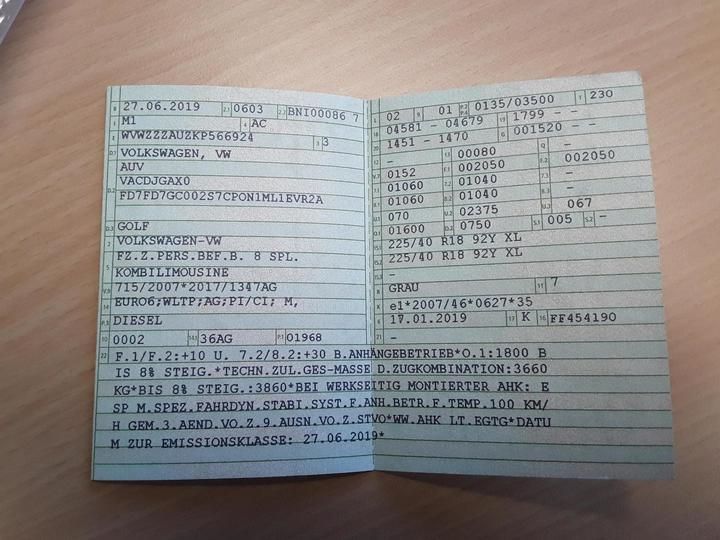 B 27.06.2019 2.1 0603 2.2 BNI00086 7
J M1 4 AC
E WVWZZZAUZKP566924 3 3
D.1 VOLKSWAGEN, VW
AUV
D.2 VACDJGAX0
FD7FD7GC002S7CPON1ML1EVR2A
D.3 GOLF
2 VOLKSWAGEN-VW
5 FZ.Z.PERS.BEF.B. 8 SPL.
KOMBILIMOUSINE
V.9 715/2007*2017/1347AG
14 EURO6;WLTP;AG;PI/CI; M,
P.3 DIESEL
10 0002 14.1 36AG P.1 01968
L 02 9 01 P.2 0135/03500 T 230
18 04581 - 04679 19 1799 - -
20 1451 - 1470 G 001520 - -
12 - 13 00080 Q -
V.7 0152 F.1 002050 F.2 002050
7.1 01060 7.2 01040 7.3 -
8.1 01060 8.2 01040 8.3 -
U.1 070 U.2 02375 U.3 067
O.1 01600 O.2 0750 S.1 005 S.2 -
15.1 225/40 R18 92Y XL
15.2 225/40 R18 92Y XL
15.3 -
R GRAU 11 7
K e1*2007/46*0627*35
6 17.01.2019 17 K 16 FF454190
21 -
22 F.1/F.2:+10 U. 7.2/8.2:+30 B.ANHÄNGEBETRIEB*O.1:1800 B
IS 8% STEIG.*TECHN.ZUL.GES-MASSE D.ZUGKOMBINATION:3660
KG*BIS 8% STEIG.:3860*BEI WERKSEITIG MONTIERTER AHK: E
SP M.SPEZ.FAHRDYN.STABI.SYST.F.ANH.BETR.F.TEMP.100 KM/
H GEM.3.AEND.VO.Z.9.AUSN.VO.Z.STVO*WW.AHK LT.EGTG*DATU
M ZUR EMISSIONSKLASSE: 27.06.2019*